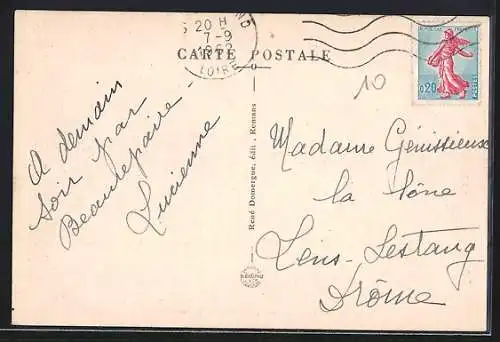 20 H
7-9
1962
LOIRE
CARTE POSTALE
0,20
POSTES
10
A demain
soir par
Beaurepaire -
Lucienne
René Domergue, édit., Romans
Madame Génissieux
la Lône
Lens-Lestang
Drôme